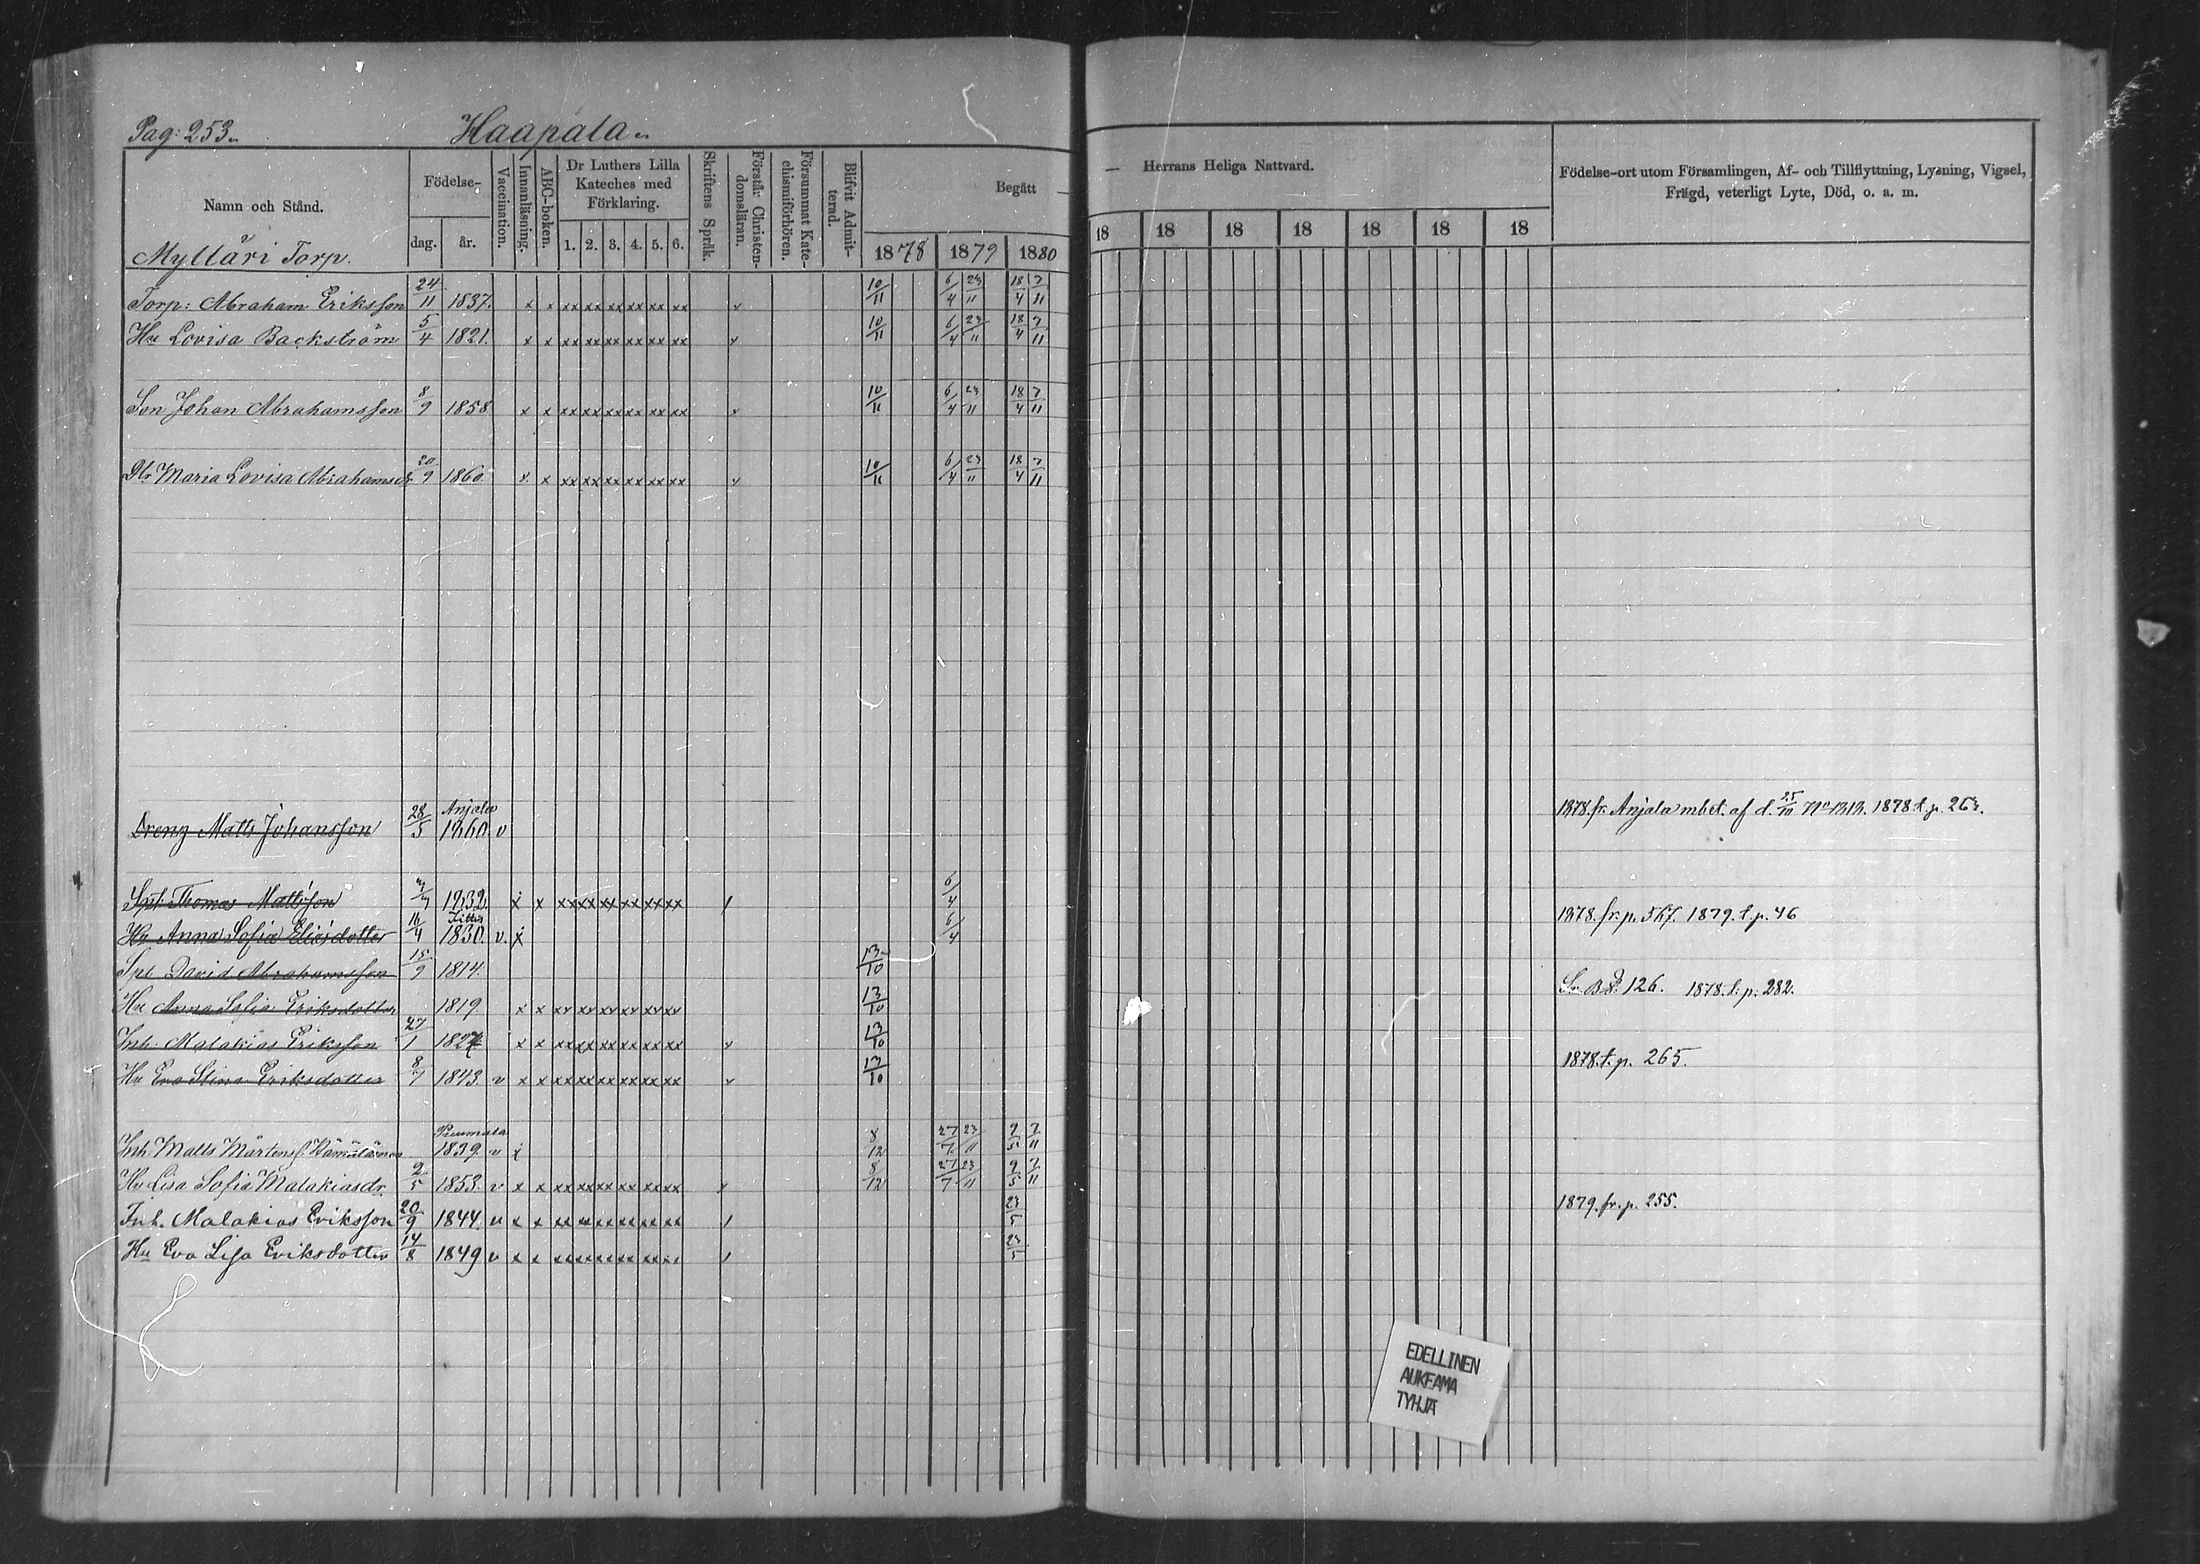 Pag: 253. Haapala
Namn och Stånd. Födelse- dag. år. Vaccination. Innanläsning. ABC-boken. Dr Luthers Lilla Kateches med Förklaring. 1. 2. 3. 4. 5. 6. Skriftens Språk. Förstår Christendomsläran. Försummat Katechismiförhören. Blifvit Admitterad. Begått — 1878 1879 1880
— Herrans Heliga Nattvard. 18 18 18 18 18 18 18
Födelse-ort utom Församlingen, Af- och Tillflyttning, Lysning, Vigsel,
Frägd, veterligt Lyte, Död, o. a. m.
Mylläri Torp.
Torp: Abraham Eriksson 24/11 1837. x x xx xx xx xx xx xx v 10/11 6/4 23/11 18/4 7/11
Hu Lovisa Backström 5/4 1821. x x xx xx xx xx xx xx v 10/11 6/4 23/11 18/4 7/11
Son Johan Abrahamsson 8/9 1858 x x xx xx xx xx xx xx v 10/11 6/4 23/11 18/4 7/11
Dtr Maria Lovisa Abrahamsdr 20/9 1860. x x xx xx xx xx xx xx v 10/11 6/4 23/11 18/4 7/11
Dreng Matts Johansson 28/5 Anjala 1860 v 1878. fr. Anjala mbet. af d. 25/10 No 1313. 1878. t. p. 263.
Spt. Thomas Mattsson 1832 x x xx xx xx xx xx xx / 6/4
Hu Anna Sofia Eliasdotter 16/4 Jittis 1830. v. x 6/4 1878. fr. p. 567. 1879. t. p. 46
Spt David Abrahamsson 15/9 1814. 13/10
Hu Anna Sofia Eriksdotter 1819. x x xx xx xx xx xx xx 13/10 126. 1878. t. p. 282.
Inh. Malakias Eriksson 27/1 1824 x x xx xx xx xx xx xx v 13/10
Hu Eva Stina Eriksdotter 8/7 1843. v x x xx xx xx xx xx xx v 13/10 1878. t. p. 265.
Inh. Matts Mårtens. Hämäläinen Puumala 1839. v x 8/12 27/7 23/11 9/5 7/11
Hu Lisa Sofia Malakiasdr. 2/5 1853. v x x xx xx xx xx xx xx x 8/12 27/7 23/11 9/5 7/11
Inh. Malakias Eriksson 20/9 1844. v x x xx xx xx xx xx xx / 23/5 1879. fr. p. 255.
Hu Eva Lisa Eriksdotter 14/8 1849 v x x xx xx xx xx xx xx / 23/5
EDELLINEN
AUKEAMA
TYHJÄ